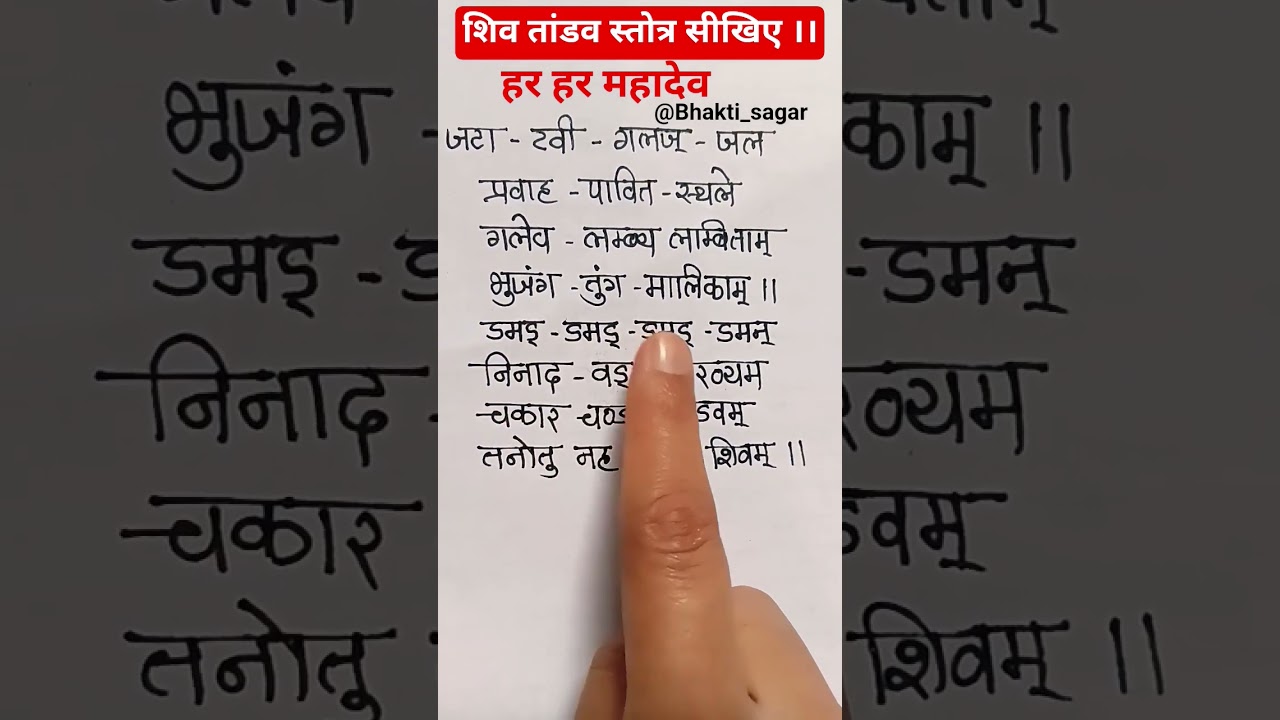 शिव तांडव स्तोत्र सीखिए ।।
हर हर महादेव
@Bhakti_sagar
जटा - टवी - गलज् - जल
प्रवाह - पावित - स्थले
गलेव - लम्ब्य लाम्बिताम्
भुजंग - तुंग - मालिकाम् ।।
डमड् - डमड् - डमड् - डमन्
निनाद - वड् रव्यम
चकार - चण्ड डवम्
तनोतु नह शिवम् ।।